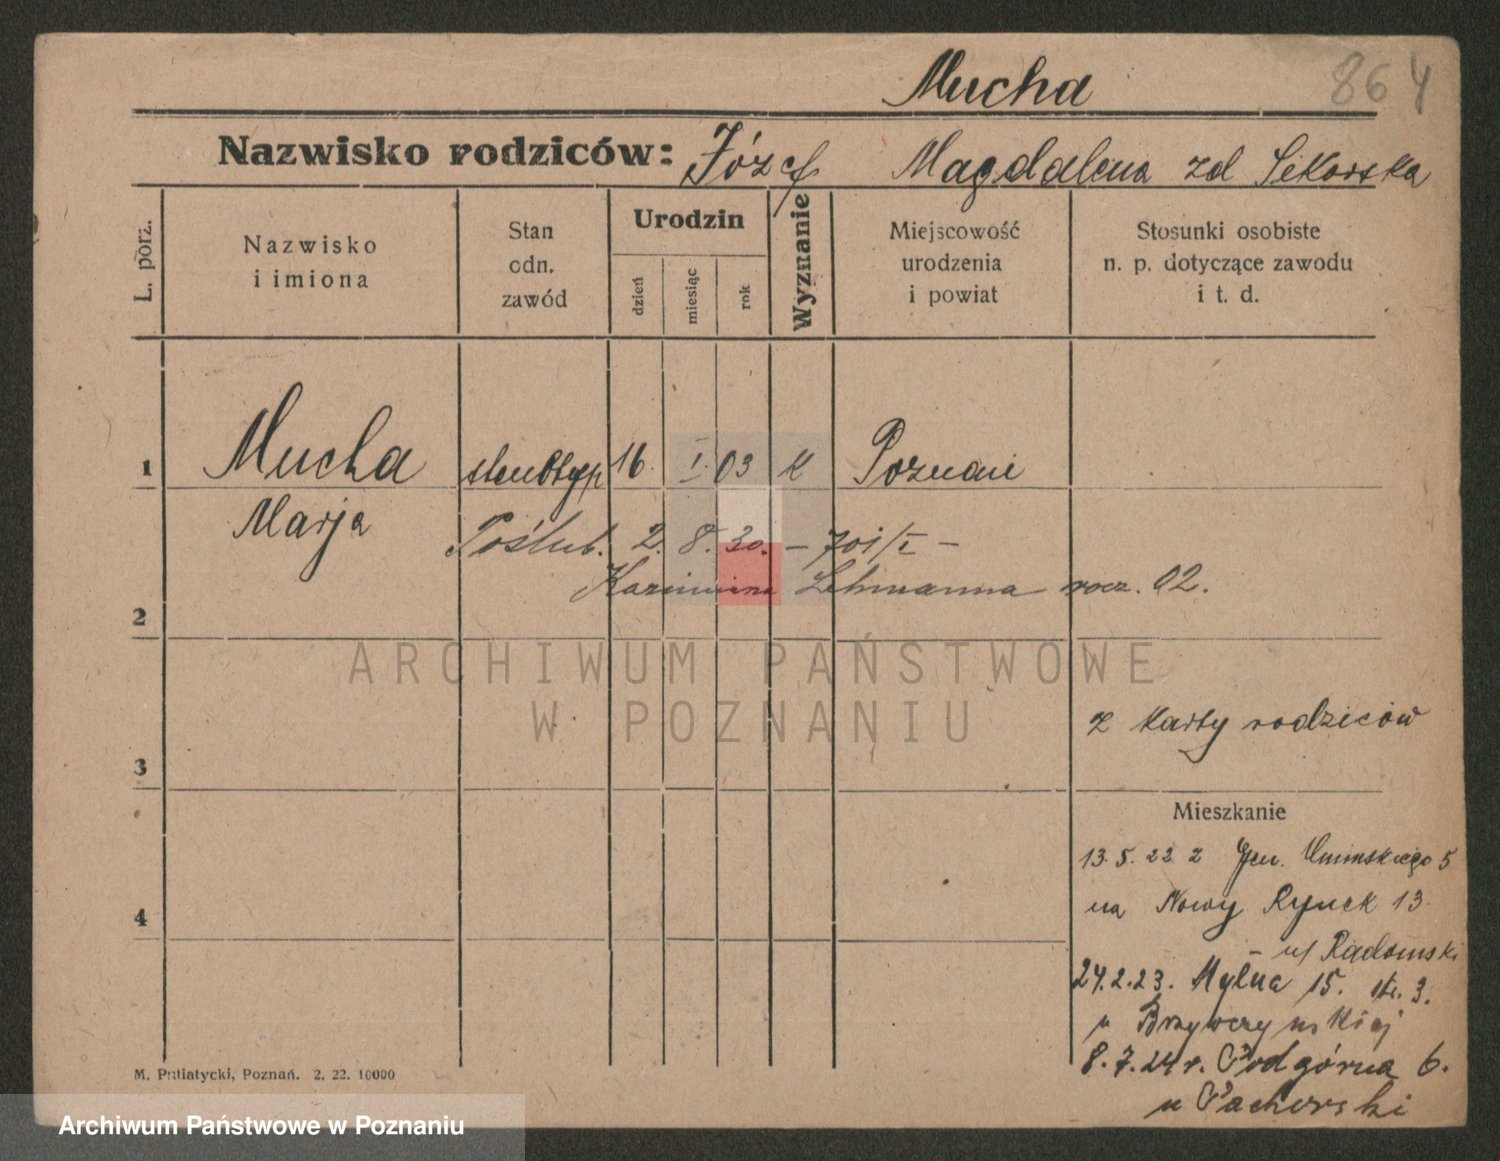 Mucha 864
Nazwisko rodziców: Józef Magdalena zd Sikorska
L. porz.
Nazwisko
i imiona
Stan
odn.
zawód
Urodzin
dzień
miesiąc
rok
Wyznanie
Miejscowość
urodzenia
i powiat
Stosunki osobiste
n. p. dotyczące zawodu
i t. d.
1 Mucha stenotyp 16. I. 03 k Poznań
Marja
Poślub. 2. 8. 30. – 701/I –
Kazimierza Lehmanna rocz. 02.
2
ARCHIWUM PAŃSTWOWE
W POZNANIU
z karty rodziców
3
Mieszkanie
13. 5. 22 z Gen. Umińskiego 5
na Nowy Rynek 13
4
– u/ Radomski
24.2.23. Mylna 15. 3.
u Brzywczyńskiej
8.7.24 r. Podgórna 6.
u Pachorski
M. Putiatycki, Poznań. 2. 22. 10000
Archiwum Państwowe w Poznaniu